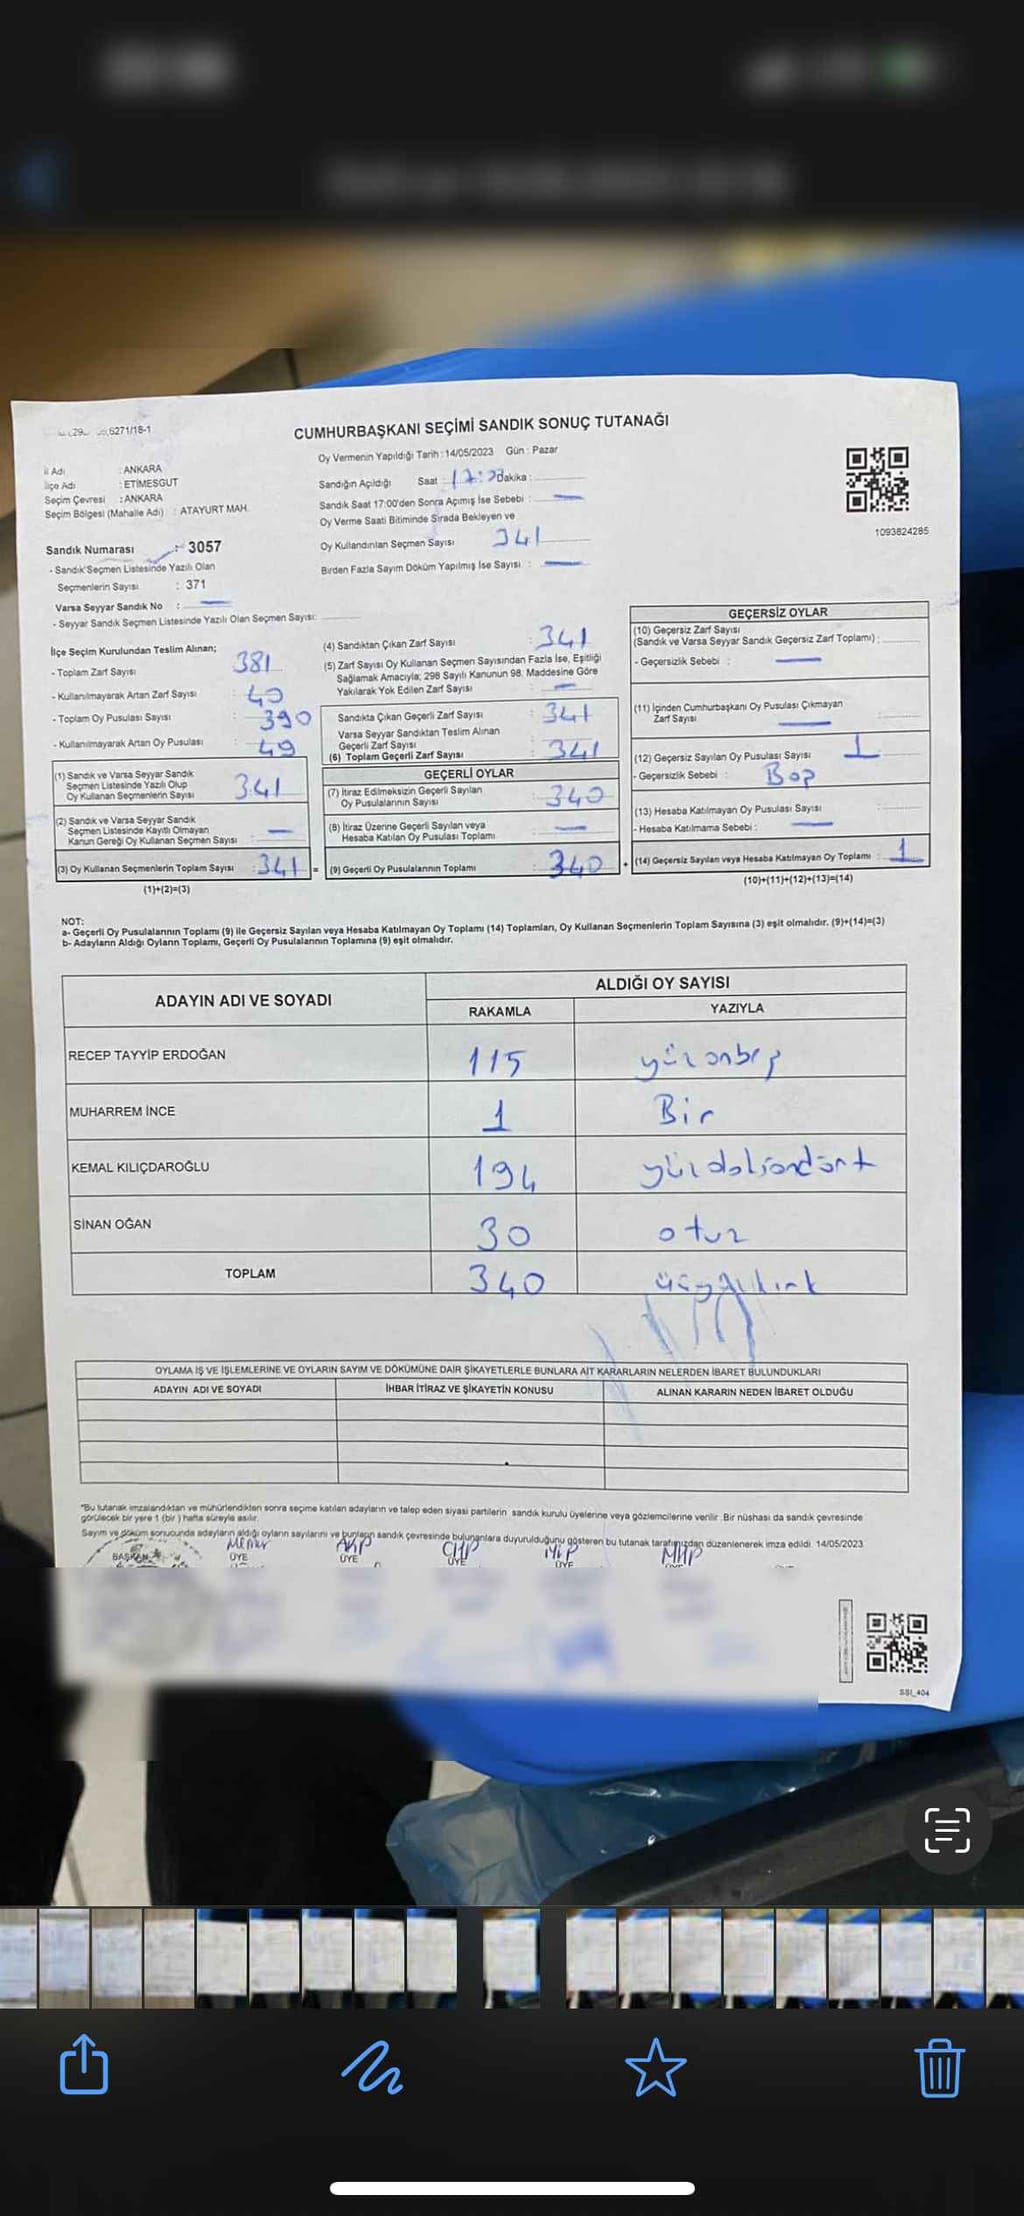 6271/18-1
CUMHURBAŞKANI SEÇİMİ SANDIK SONUÇ TUTANAĞI
Oy Vermenin Yapıldığı Tarih : 14/05/2023 Gün : Pazar
İl Adı : ANKARA
İlçe Adı : ETİMESGUT
Seçim Çevresi : ANKARA
Seçim Bölgesi (Mahalle Adı) : ATAYURT MAH.
Sandığın Açıldığı Saat : Dakika :
Sandık Saat 17:00'den Sonra Açımış İse Sebebi :
Oy Verme Saati Bitiminde Sırada Bekleyen ve
Oy Kullandırılan Seçmen Sayısı 341
Birden Fazla Sayım Döküm Yapılmış İse Sayısı :
1093824285
Sandık Numarası : 3057
- Sandık Seçmen Listesinde Yazılı Olan
Seçmenlerin Sayısı : 371
Varsa Seyyar Sandık No :
- Seyyar Sandık Seçmen Listesinde Yazılı Olan Seçmen Sayısı:
İlçe Seçim Kurulundan Teslim Alınan;
- Toplam Zarf Sayısı 381
- Kullanılmayarak Artan Zarf Sayısı : 40
- Toplam Oy Pusulası Sayısı : 390
- Kullanılmayarak Artan Oy Pusulası : 49
(1) Sandık ve Varsa Seyyar Sandık
Seçmen Listesinde Yazılı Olup
Oy Kullanan Seçmenlerin Sayısı 341
(2) Sandık ve Varsa Seyyar Sandık
Seçmen Listesinde Kayıtlı Olmayan
Kanun Gereği Oy Kullanan Seçmen Sayısı
(3) Oy Kullanan Seçmenlerin Toplam Sayısı : 341 =
(1)+(2)=(3)
(4) Sandıktan Çıkan Zarf Sayısı : 341
(5) Zarf Sayısı Oy Kullanan Seçmen Sayısından Fazla İse, Eşitliği
Sağlamak Amacıyla; 298 Sayılı Kanunun 98. Maddesine Göre
Yakılarak Yok Edilen Zarf Sayısı
Sandıkta Çıkan Geçerli Zarf Sayısı : 341
Varsa Seyyar Sandıktan Teslim Alınan
Geçerli Zarf Sayısı
(6) Toplam Geçerli Zarf Sayısı : 341
GEÇERLİ OYLAR
(7) İtiraz Edilmeksizin Geçerli Sayılan
Oy Pusulalarının Sayısı : 340
(8) İtiraz Üzerine Geçerli Sayılan veya
Hesaba Katılan Oy Pusulası Toplamı
(9) Geçerli Oy Pusulalarının Toplamı : 340 +
GEÇERSİZ OYLAR
(10) Geçersiz Zarf Sayısı
(Sandık ve Varsa Seyyar Sandık Geçersiz Zarf Toplamı) :
- Geçersizlik Sebebi :
(11) İçinden Cumhurbaşkanı Oy Pusulası Çıkmayan
Zarf Sayısı
(12) Geçersiz Sayılan Oy Pusulası Sayısı 1
- Geçersizlik Sebebi :
(13) Hesaba Katılmayan Oy Pusulası Sayısı
- Hesaba Katılmama Sebebi :
(14) Geçersiz Sayılan veya Hesaba Katılmayan Oy Toplamı : 1
(10)+(11)+(12)+(13)=(14)
NOT:
a- Geçerli Oy Pusulalarının Toplamı (9) ile Geçersiz Sayılan veya Hesaba Katılmayan Oy Toplamı (14) Toplamları, Oy Kullanan Seçmenlerin Toplam Sayısına (3) eşit olmalıdır. (9)+(14)=(3)
b- Adayların Aldığı Oyların Toplamı, Geçerli Oy Pusulalarının Toplamına (9) eşit olmalıdır.
ADAYIN ADI VE SOYADI ALDIĞI OY SAYISI
RAKAMLA YAZIYLA
RECEP TAYYİP ERDOĞAN 115 yüzonbeş
MUHARREM İNCE 1 Bir
KEMAL KILIÇDAROĞLU 194 yüzdoksandört
SİNAN OĞAN 30 otuz
TOPLAM 340 üçyüzkırk
OYLAMA İŞ VE İŞLEMLERİNE VE OYLARIN SAYIM VE DÖKÜMÜNE DAİR ŞİKAYETLERLE BUNLARA AİT KARARLARIN NELERDEN İBARET BULUNDUKLARI
ADAYIN ADI VE SOYADI İHBAR İTİRAZ VE ŞİKAYETİN KONUSU ALINAN KARARIN NEDEN İBARET OLDUĞU
"Bu tutanak imzalandıktan ve mühürlendikten sonra seçime katılan adayların ve talep eden siyasi partilerin sandık kurulu üyelerine veya gözlemcilerine verilir. Bir nüshası da sandık çevresinde
görülecek bir yere 1 (bir) hafta süreyle asılır.
Sayım ve döküm sonucunda adayların aldığı oyların sayılarını ve bunların sandık çevresinde bulunanlara duyurulduğunu gösteren bu tutanak tarafımızdan düzenlenerek imza edildi. 14/05/2023
Memur AKP CHP İYİP MHP
BAŞKAN ÜYE ÜYE ÜYE ÜYE
SSI_404